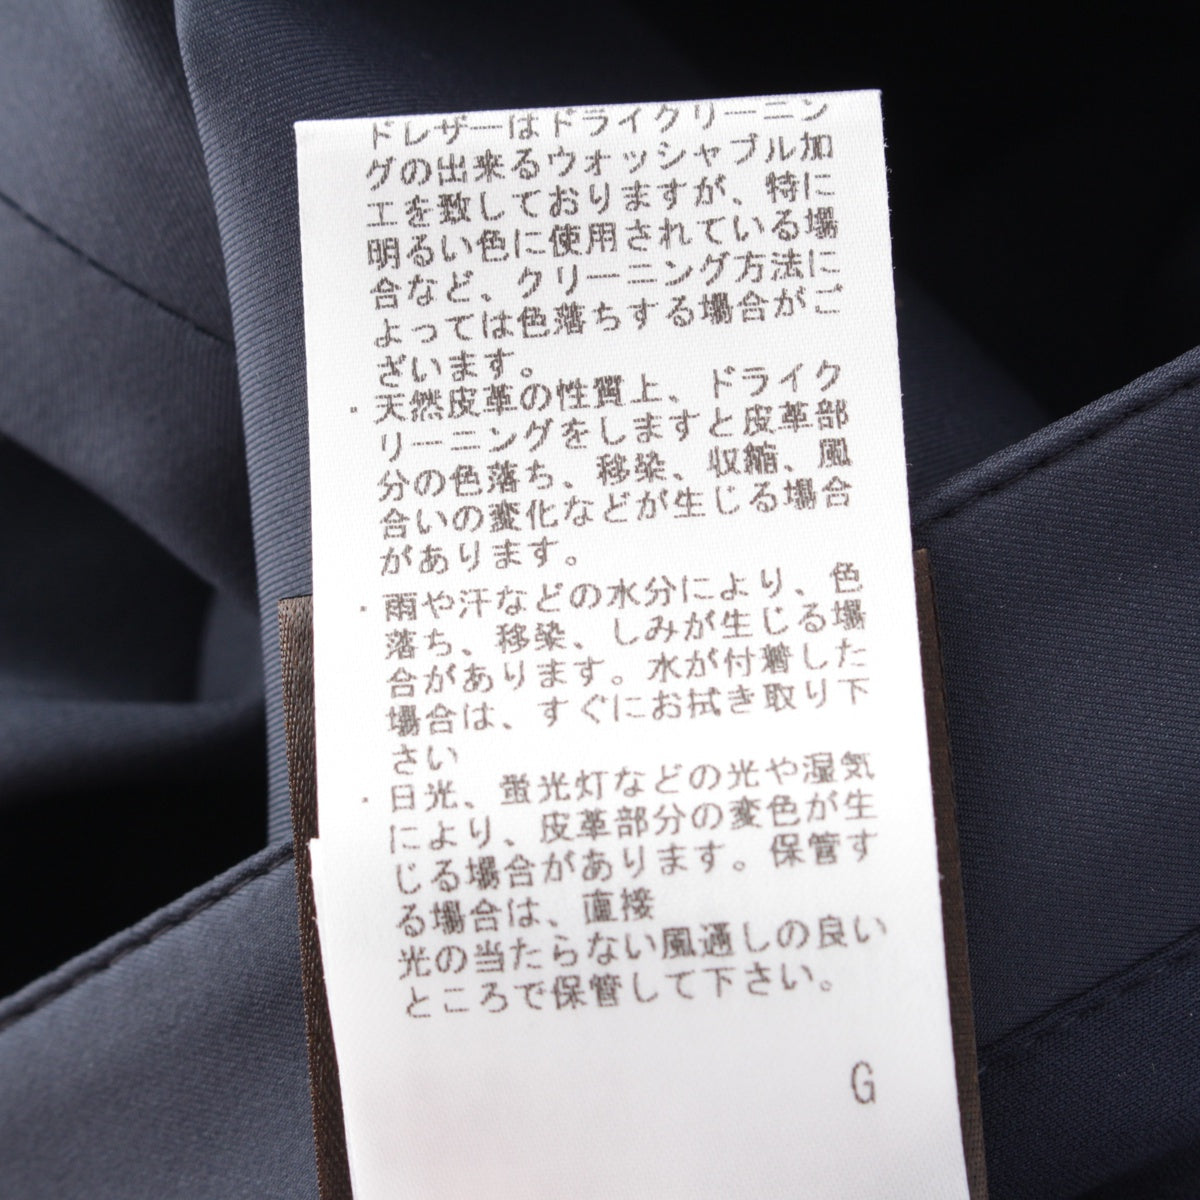 ドレザーはドライクリーニン
グの出来るウォッシャブル加
工を致しておりますが、特に
明るい色に使用されている場
合など、クリーニング方法に
よっては色落ちする場合がご
ざいます。
・天然皮革の性質上、ドライク
リーニングをしますと皮革部
分の色落ち、移染、収縮、風
合いの変化などが生じる場合
があります。
・雨や汗などの水分により、色
落ち、移染、しみが生じる場
合があります。水が付着した
場合は、すぐにお拭き取り下
さい
・日光、蛍光灯などの光や湿気
により、皮革部分の変色が生
じる場合があります。保管す
る場合は、直接
光の当たらない風通しの良い
ところで保管して下さい。
G